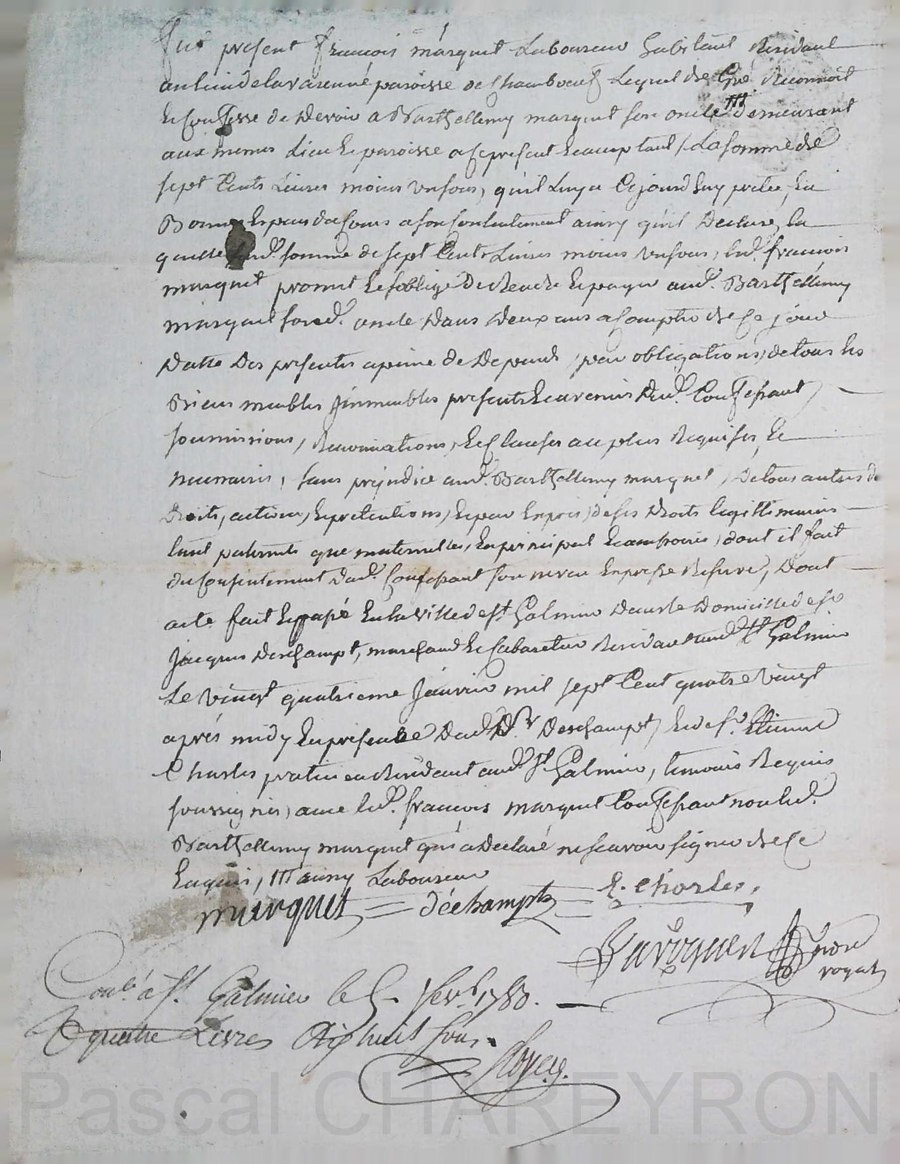 Fut présent françois marquet Laboureur habitant Residant
au lieu de la varenne paroisse de Chambœuf Lequel de Gré Reconnoit
Et Confesse de Devoir a Barthellemy marquet son oncle Demeurant
aux memes Lieu Et paroisse a Ce present Et acceptant, La somme de
sept Cents Livres moins un sous, qu'il luy a Cejourd'huy pretée, En
Bonnes Especes de Cours a son Contentement ainsy qu'il Declare, la
quelle sud. somme de sept Cents Livres moins un sous, led. francois
marquet promet Et s'oblige de Rendre Et payer aud. Barthellemy
marquet sond. oncle Dans Deux ans a Compter de Ce jour
Datte Des presentes a peine de Depends, par obligations, de tous ses
Biens meubles Jmmeubles presents Et avenirs Dud. Confessant,
soumissions, Renonciations, Et Clauses au plus Requises, Et
necessaires, sans prejudice aud. Barthellemy marquet, De tous autres de
Droits, actions, Et pretentions, Et par Exprès, de ses Droits legittimaires
tant paternels que maternelles, En principal Et accessoires, dont il fait
du Consentement Dud. Confessant son neveu Expresse Reserve, Dont
acte fait Et passé En la ville de st. Galmier Dans le Domicille de sr.
Jacques Deschampt, marchand Et Cabaretier Residant aud. st. Galmier
Le vingt quatrieme Janvier mil sept Cent quatre vingt
après midy En presence Dud. Sr. Deschampt, Et de sr. Etienne
Charles praticien Residant aud. st. Galmier, temoins Requis
soussignés, avec led. francois marquet Confessant non led.
Barthellemy marquet qui a Declaré ne scavoir signer de Ce
Enquis, III ainsy Laboureur
marquet = déchampt = E. Charles.
royal
Conlé. à st. Galmier le 5 fevr. 1780.
R quatre Livres dix huit sous.